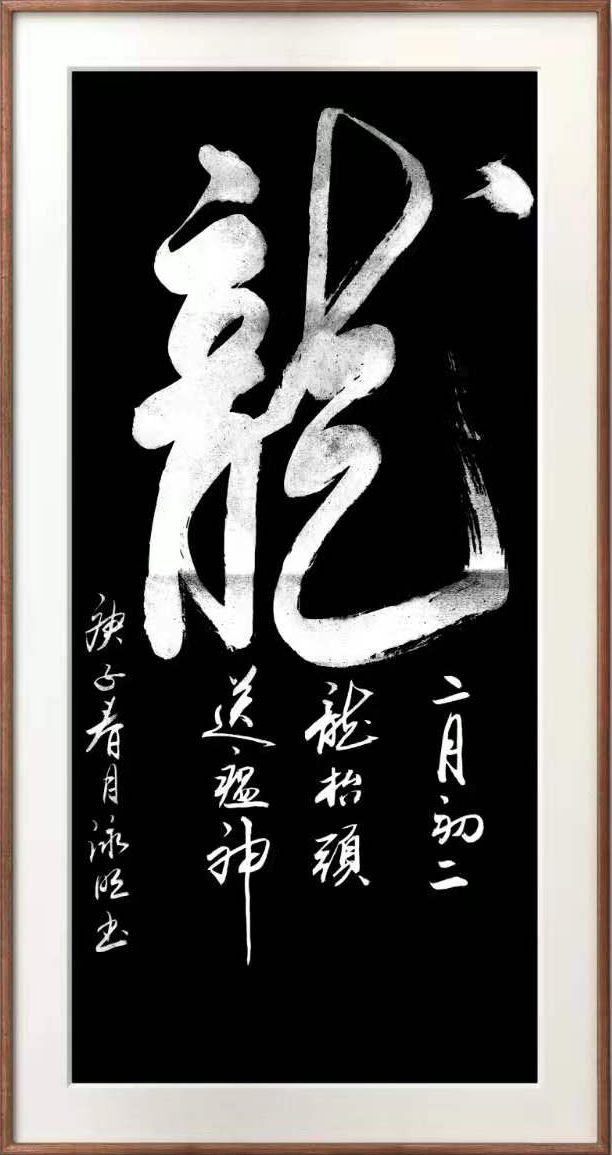 龍
二月初二
龍抬頭
送瘟神
庚子春月泳明书